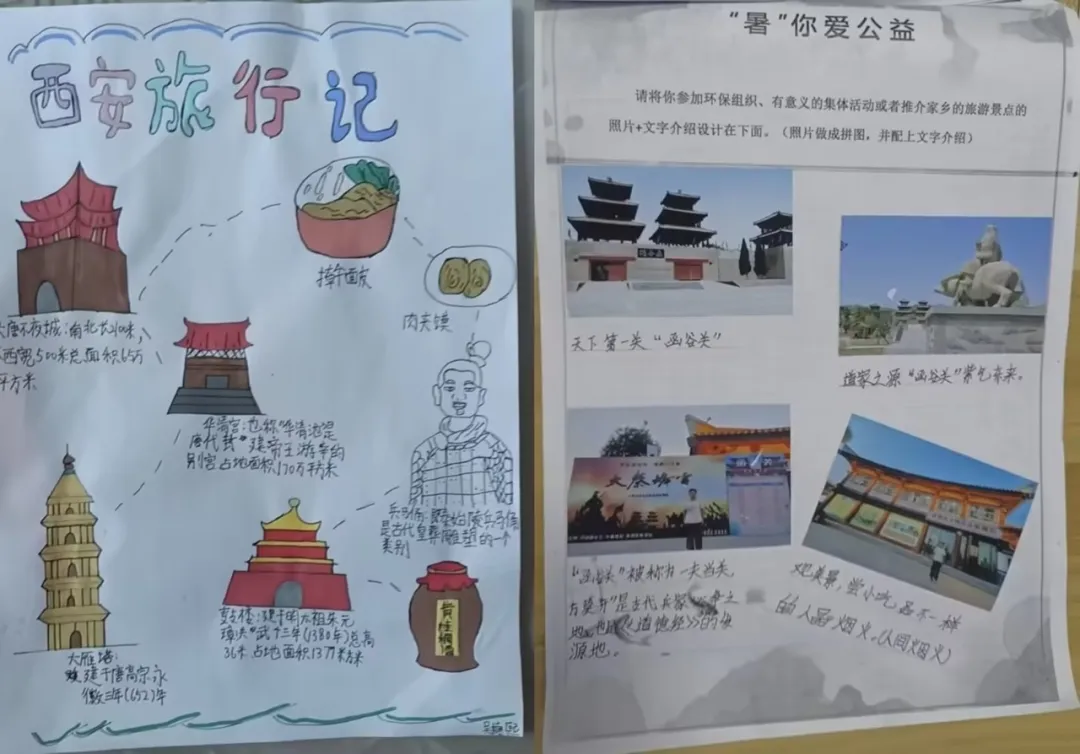 西安旅行记
擀面皮
肉夹馍
大唐不夜城:南北长2100米,
东西宽500米总面积65万
平方米
华清宫:也称"华清池是
唐代封"建帝王游幸的
别宫占地面积
兵马俑:
是古代墓葬雕塑的一个
类别
鼓楼:建于明太祖朱元
璋洪武十三年(1380年)总高
36米占地面积
贵妃稠酒
大雁塔:
建于唐高宗永
徽三年(652)年
"暑"你爱公益
请将你参加环保组织、有意义的集体活动或者推介家乡的旅游景点的
照片+文字介绍设计在下面。(照片做成拼图,并配上文字介绍)
函谷关
天下第一关"函谷关"
道家之源"函谷关"紫气东来。
"函谷关"被称为一夫当关,
万莫开"是古代兵家必争之
地,也是《道德经》的发
源地。
观美景,尝小吃,品不一样
的人间烟火。(人间烟火)